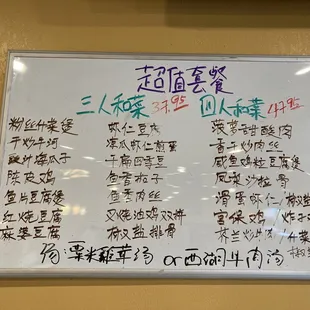 超值套餐
三人和菜 37.95 四人和菜 47.95
粉丝什菜煲 虾仁豆腐 菠萝甜酸肉
干炒牛河 凉瓜虾仁煎蛋 香干炒肉丝
豉汁 瓜子 干煸四季豆 咸鱼鸡粒豆腐煲
陈皮鸡 鱼香茄子 凤梨沙拉骨
鱼片豆腐煲 鱼香肉丝 滑蛋虾仁
红烧豆腐 叉烧油鸡双拼 宫保鸡 炸子
麻婆豆腐 椒盐排骨 芥兰炒牛 什菜
汤:粟米雞茸汤 or 西湖牛肉汤